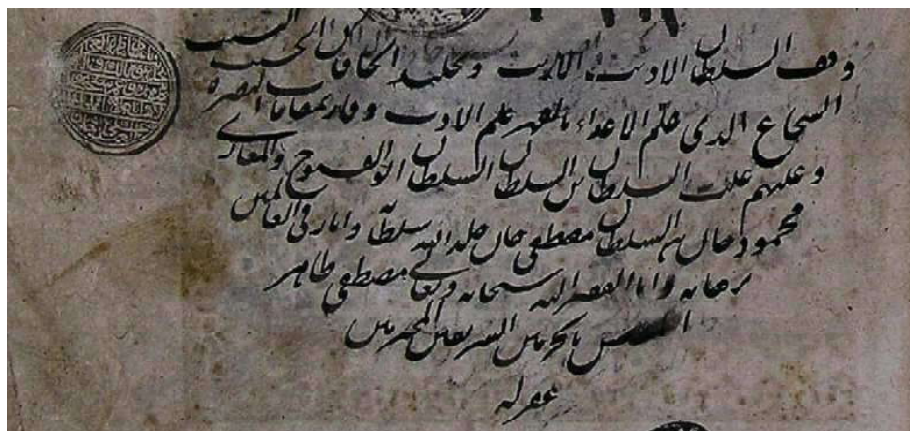 وقف السلطان الاديب الاريب وتخليد الخاقان الاكمل الحسيب النسيب
الشجاع الذي علّم الاعداء بالقهر علم الادب وفاز بمقامات النصرة
وعليهم غلب السلطان بن السلطان السلطان ابو الفتوح والمغازي
محمود خان بن السلطان مصطفى خان خلد الله سلطانه وابان في العالمين
برهانه وانا الفقير اليه سبحانه وتعالى مصطفى طاهر
المفتش بالحرمين الشريفين المحترمين
غفر له